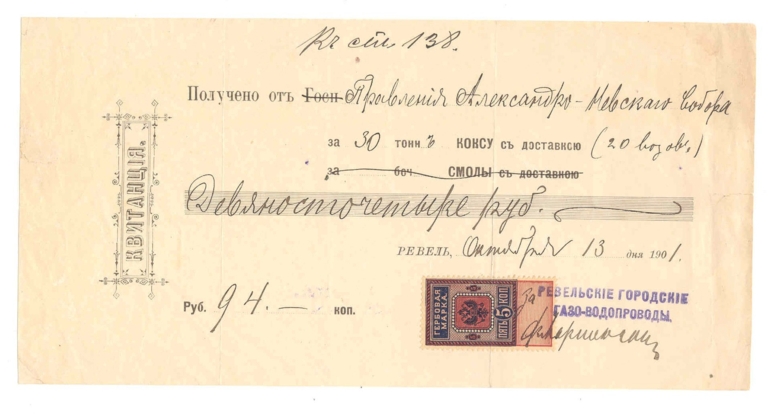 Къ ст. 138.
КВИТАНЦІЯ.
Получено отъ Госп Правленія Александро-Невскаго Собора
за 30 тоннъ КОКСУ съ доставкою (20 возов.)
за боч СМОЛЫ съ доставкою
Девяносто четыре руб.
РЕВЕЛЬ, Октября 13 дня 1901.
Руб. 94. — коп.
ГЕРБОВАЯ МАРКА
ПЯТЬ 5 КОП.
За РЕВЕЛЬСКІЕ ГОРОДСКІЕ
ГАЗО-ВОДОПРОВОДЫ.